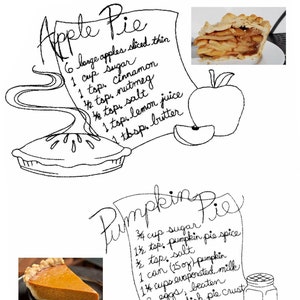 Apple Pie
6 large apples sliced thin
1 cup sugar
1 tsp. cinnamon
½ tsp. nutmeg
½ tsp. salt
1 tsp. lemon juice
1 tbsp. butter
Pumpkin Pie
¾ cup sugar
1½ tsp. pumpkin pie spice
½ tsp. salt
1 can (15 oz) pumpkin
1¼ cups evaporated milk
2 eggs, beaten
pie crust